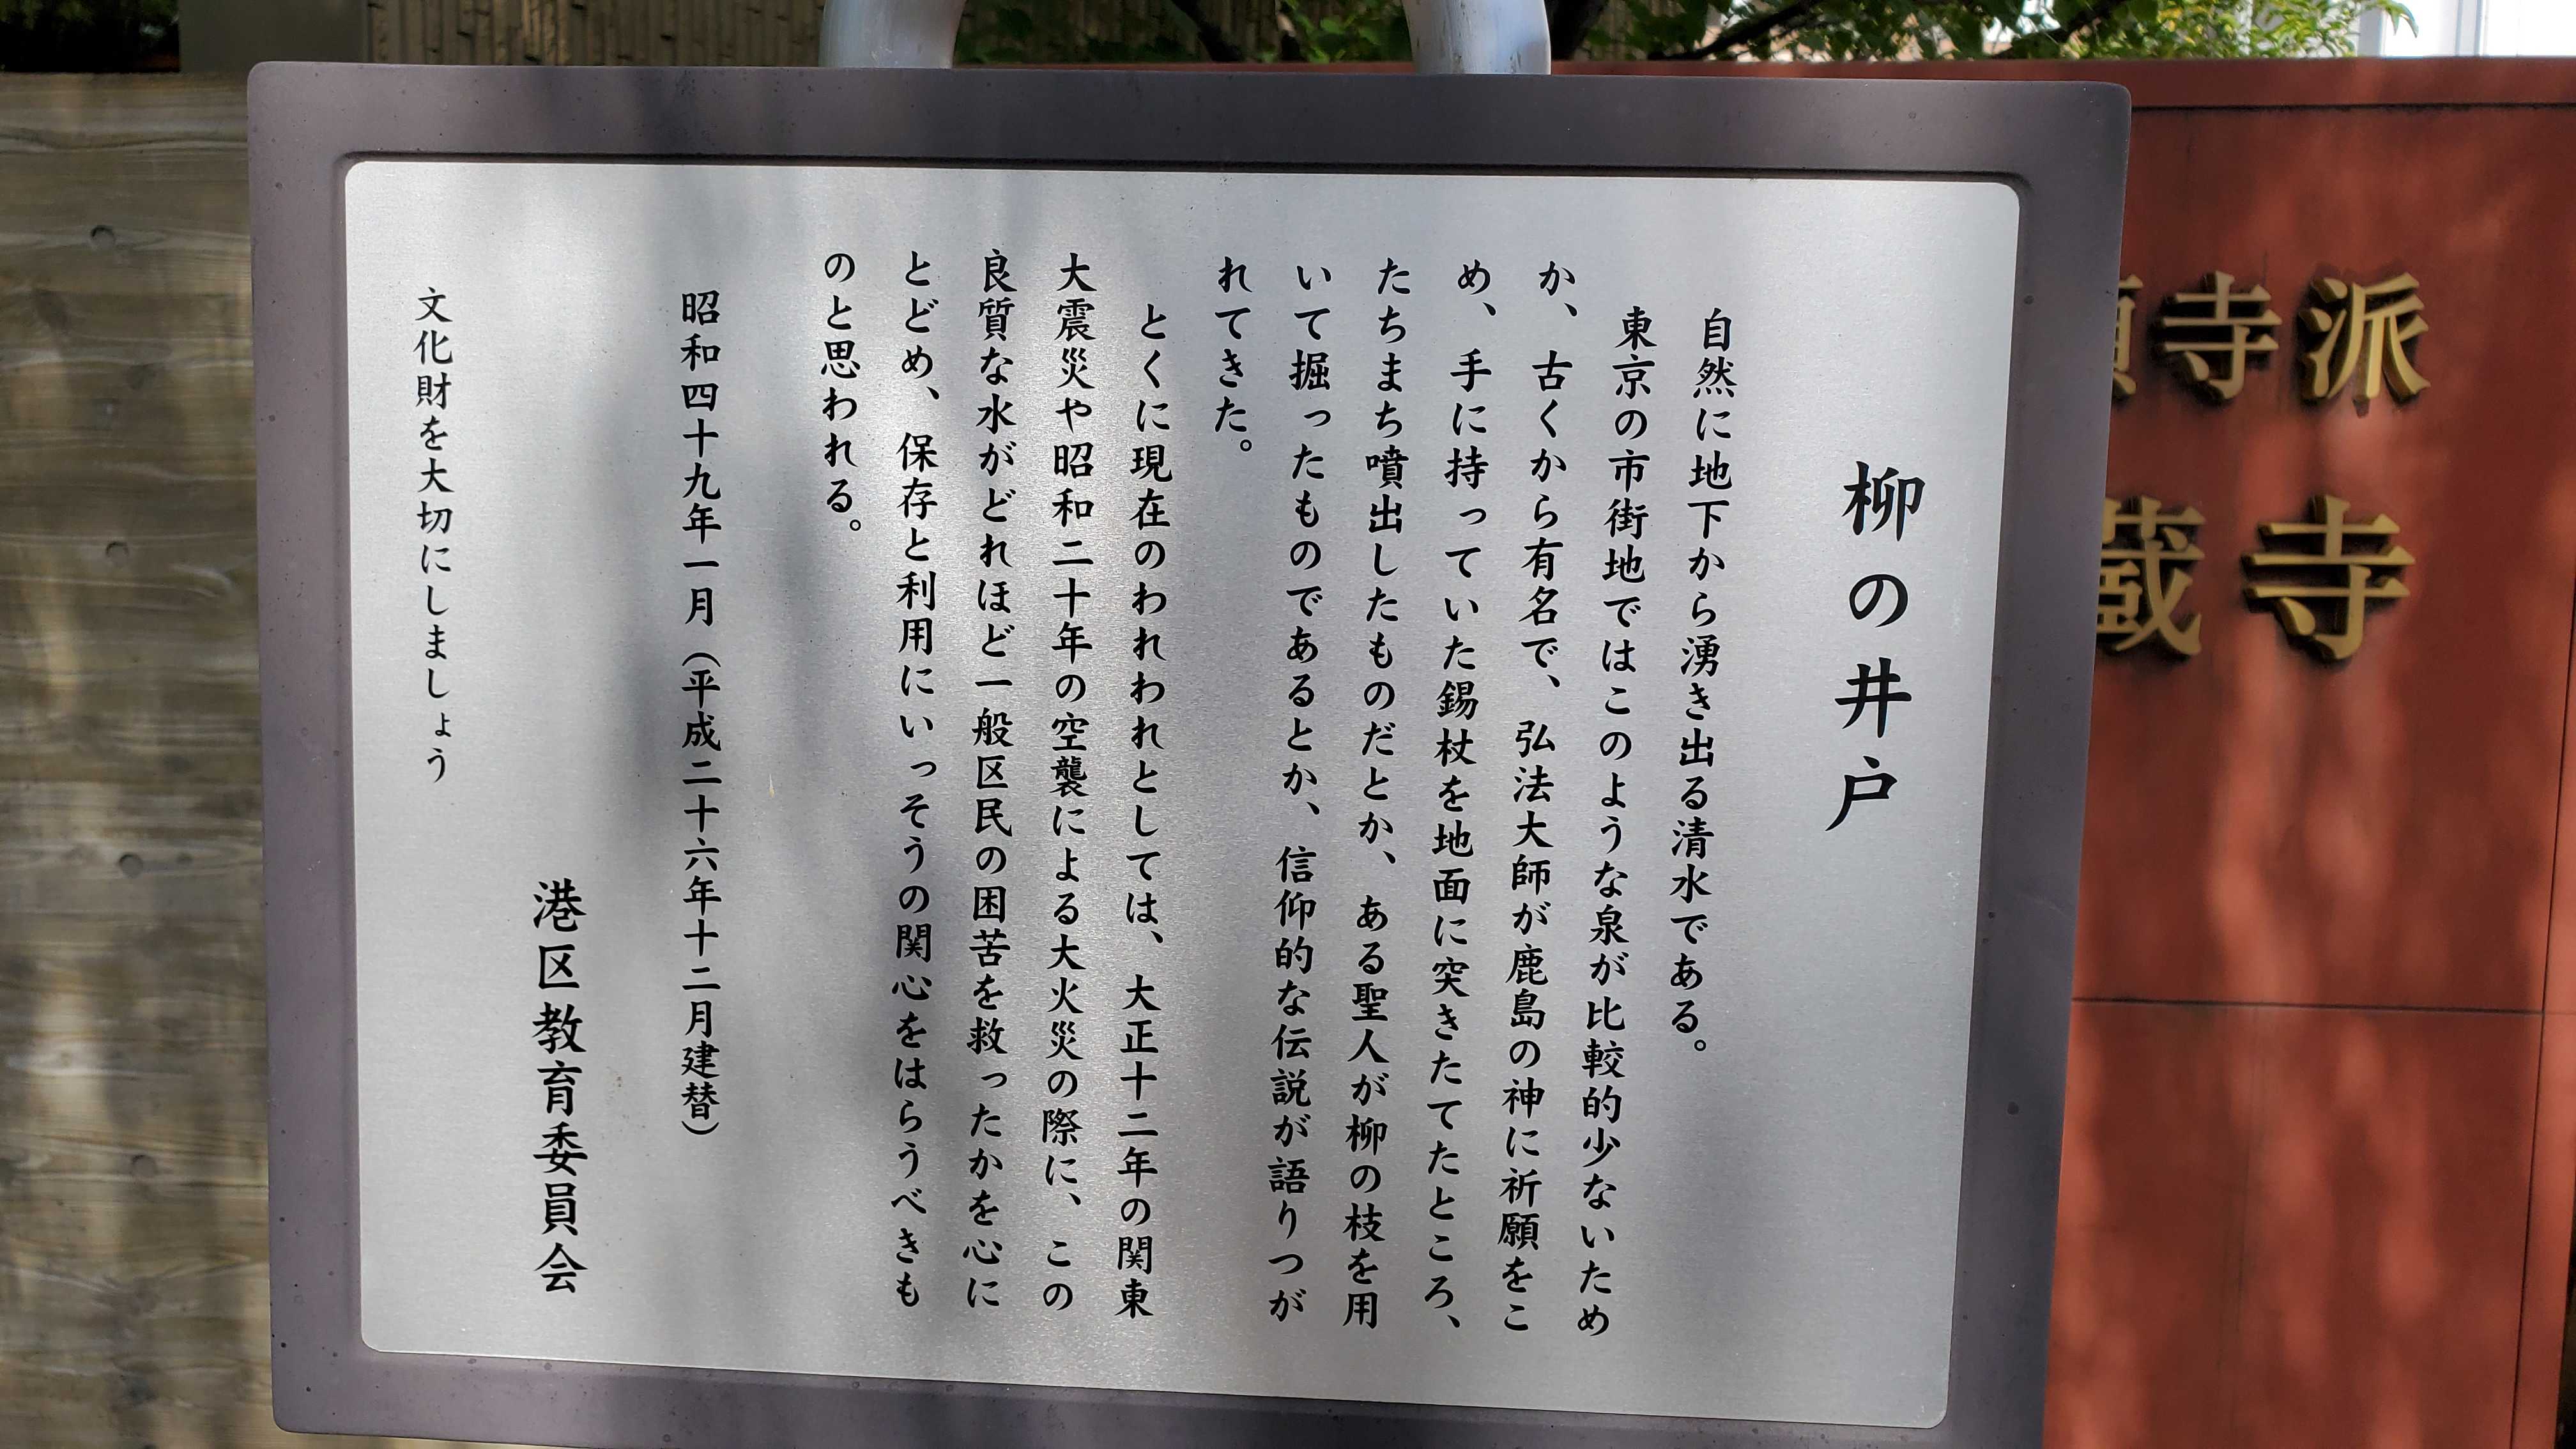 柳の井戸
自然に地下から湧き出る清水である。
東京の市街地ではこのような泉が比較的少ないため
か、古くから有名で、弘法大師が鹿島の神に祈願をこ
め、手に持っていた錫杖を地面に突きたてたところ、
たちまち噴出したものだとか、ある聖人が柳の枝を用
いて掘ったものであるとか、信仰的な伝説が語りつが
れてきた。
とくに現在のわれわれとしては、大正十二年の関東
大震災や昭和二十年の空襲による大火災の際に、この
良質な水がどれほど一般区民の困苦を救ったかを心に
とどめ、保存と利用にいっそうの関心をはらうべきも
のと思われる。
昭和四十九年一月（平成二十六年十二月建替）
港区教育委員会
文化財を大切にしましょう
願寺派
蔵寺